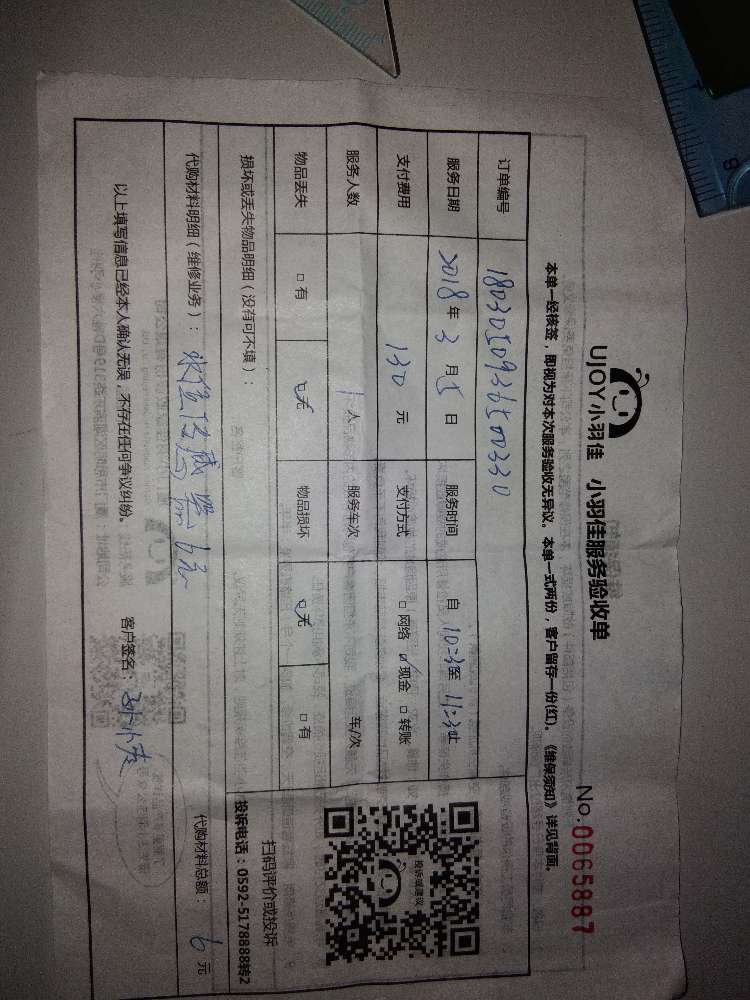 UJOY小羽佳 小羽佳服务验收单
No.0065887
本单一经核签，即视为对本次服务验收无异议。本单一式两份，客户留存一份(红)。《维保须知》详见背面。
订单编号 1803050936500330
服务日期 2018年3月5日 服务时间 自10:3至11:3止
支付费用 130元 支付方式 □网络 ☑现金 □转账
服务人数 1人 服务车次 车/次
物品丢失 □有 ☑无 物品损坏 ☑无 □有
损坏或丢失物品明细（没有可不填）：
代购材料明细（维修业务）： 水位传感器6元 代购材料总额： 6元
以上填写信息已经本人确认无误，不存在任何争议纠纷。 客户签名：
投诉或建议
扫码评价或投诉
投诉电话：0592-5178888转2